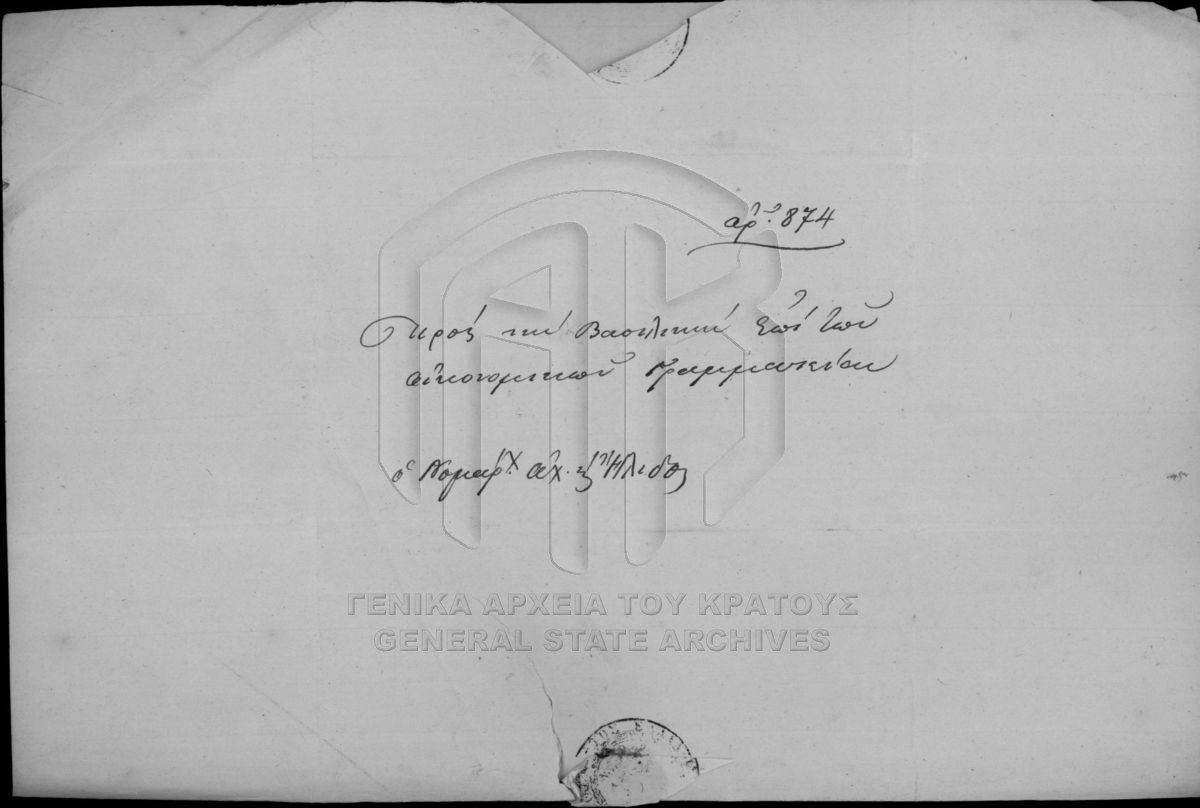 αρ. 874
Προς την Βασιλικήν Επί των
οικονομικών Γραμματείαν
ο Νομάρχ. Αχ. κ Ήλιδος
ΓΕΝΙΚΑ ΑΡΧΕΙΑ ΤΟΥ ΚΡΑΤΟΥΣ
GENERAL STATE ARCHIVES